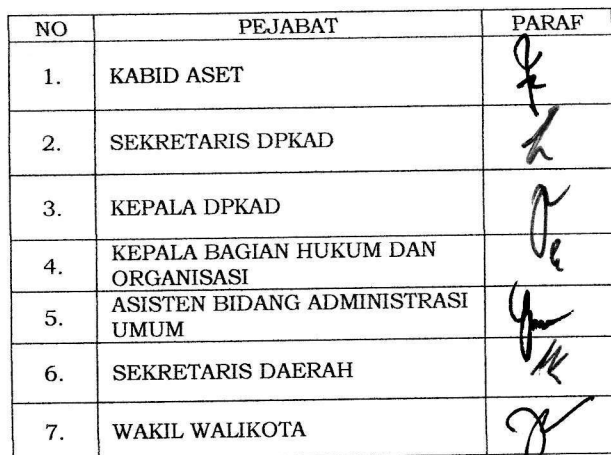 NO PEJABAT PARAF
1. KABID ASET
2. SEKRETARIS DPKAD
3. KEPALA DPKAD
4. KEPALA BAGIAN HUKUM DAN
ORGANISASI
5. ASISTEN BIDANG ADMINISTRASI
UMUM
6. SEKRETARIS DAERAH
7. WAKIL WALIKOTA